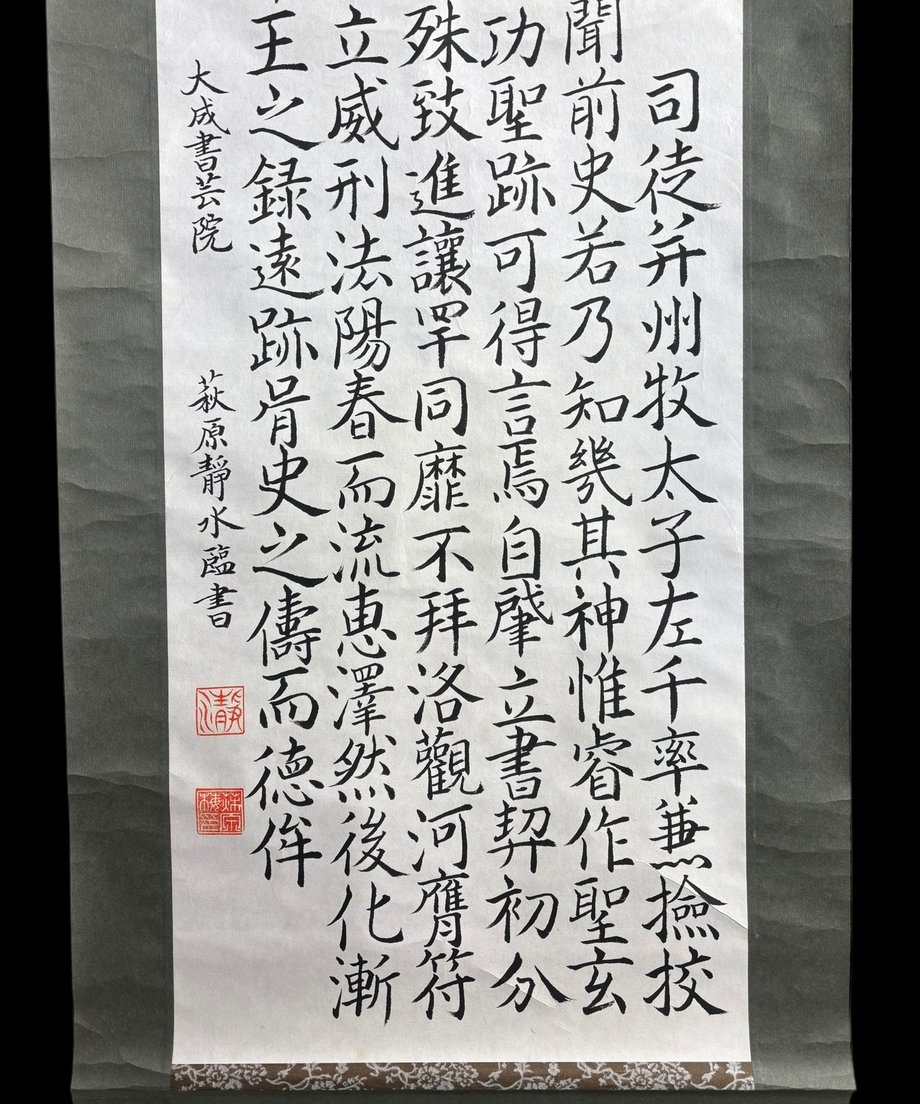 司徒并州牧太子左千率兼撿挍
聞前史若乃知幾其神惟睿作聖玄
功聖跡可得言焉自肇立書契初分
殊致進讓罕同靡不拜洛觀河膺符
立威刑法陽春而流恵澤然後化漸
王之録遠跡胥史之儔而德侔
大成書芸院 萩原靜水臨書